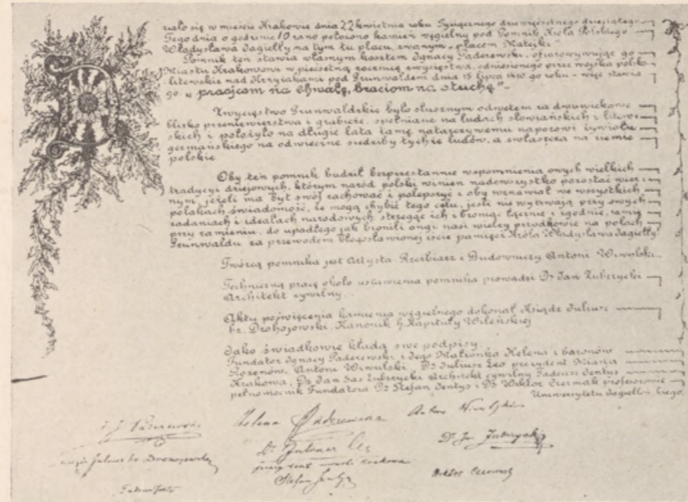 ziało się w mieście Krakowie dnia 22 kwietnia roku tysiącznego dziewięćsetnego dziesiątego
Tego dnia o godzinie 10 rano położono kamień węgielny pod Pomnik Króla Polskiego
Władysława Jagiełły na tym tu placu, zwanym „placem Matejki"
Pomnik ten stawia własnym kosztem Ignacy Paderewski, ofiarowując go
Miastu Krakowowi w pięćsetną rocznicę zwycięstwa, odniesionego przez wojska polsko
litewskie nad Krzyżakami pod Grunwaldem dnia 15 lipca 1410 go roku - więc stawia
go „praojcom na chwałę, braciom na otuchę"
Zwycięstwo Grunwaldzkie było słusznym odwetem za dwuwiekowe
blisko przeniewierstwa i grabieże, spełniane na ludach słowiańskich i litew
skich i położyło na długie lata tamę natarczywemu naporowi żywiołu
germańskiego na odwieczne siedziby tychże ludów, a zwłaszcza na ziemie
polskie
Oby ten pomnik budził bezprzestannie wspomnienia owych wielkich
tradycyi dziejowych, którym naród polski winien nadewszystko pozostać wier
nym, jeżeli ma byt swój zachować i polepszyć i oby wznawiał we wszystkich
polakach świadomość, że mogą chybić tego celu, jeśli nie wytrwają przy owych
zadaniach i ideałach narodowych strzegąc ich i broniąc łącznie i zgodnie, ramię
przy ramieniu, do upadłego jak bronili ongi nasi wielcy przodkowie na polach
Grunwaldu za przewodem błogosławionej iście pamięci Króla Władysława Jagiełły
Twórcą pomnika jest Artysta Rzeźbiarz i Budowniczy Antoni Wiwulski
Techniczną pracę około ustawienia pomnika prowadzi Dr Jan Zubrzycki
Architekt cywilny
Aktu poświęcenia kamienia węgielnego dokonał Ksiądz Juliusz
br. Drohojowski, Kanonik h. Kapituły Wileńskiej
Jako świadkowie kładą swe podpisy
Fundator Ignacy Paderewski i Jego Małżonka Helena z baronów
Rozenów, Antoni Wiwulski, Dr Juliusz Leo prezydent Miasta
Krakowa, Dr Jan Sas Zubrzycki Architekt cywilny Tadeusz Jentys
pełnomocnik Fundatora Dr Stefan Jentys i Dr Wiktor Czermak profesorowie
Uniwersytetu Jagielloń skiego
I J Paderewski
Helena Paderewska
Antoni Wiwulski
Dr Juliusz Leo
Dr Jan Zubrzycki
Stefan Jentys
Wiktor Czermak